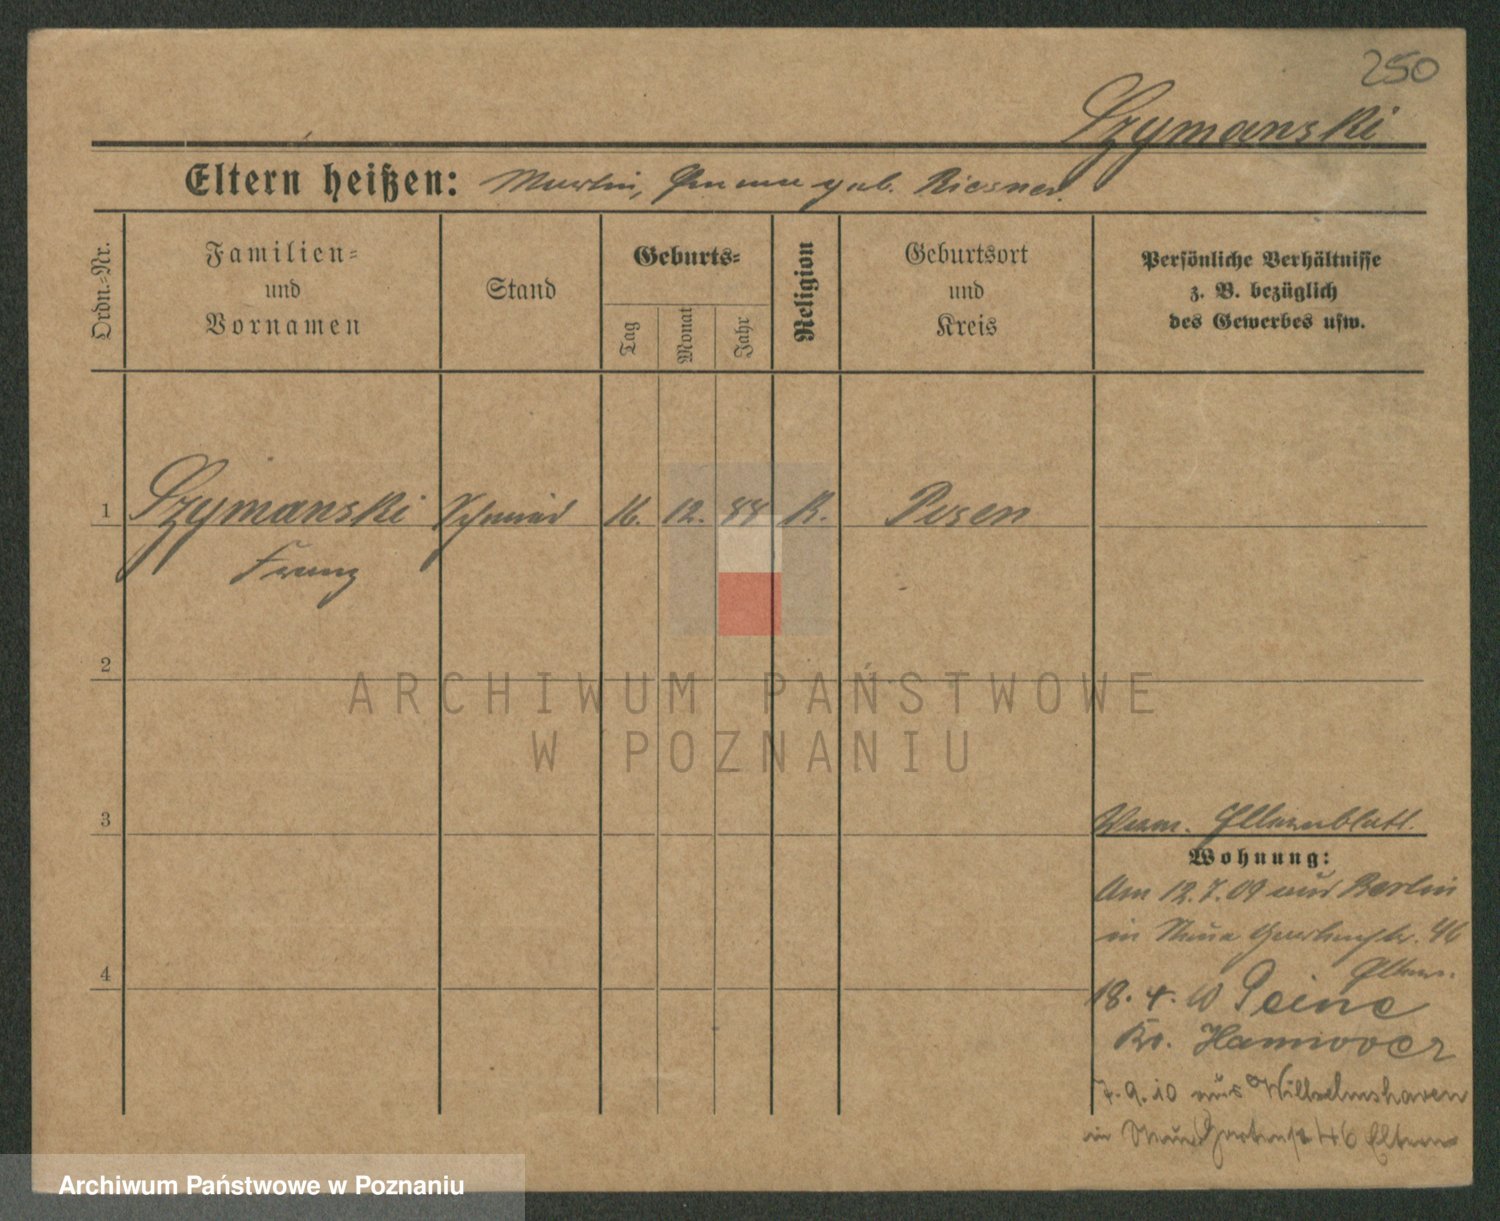 250
Szymanski
Eltern heißen: Martin, Emma geb. Riesner.
Ordn.-Nr.
Familien-
und
Vornamen
Stand
Geburts-
Tag
Monat
Jahr
Religion
Geburtsort
und
Kreis
Persönliche Verhältnisse
z. B. bezüglich
des Gewerbes usw.
1 Szymanski Schmied 16. 12. 88 K. Posen
Franz
2
3
4
ARCHIWUM PAŃSTWOWE
W POZNANIU
Elternblatt.
Wohnung:
Am 12.7.09 aus Berlin
in Neue Gartenstr. 46
Eltern.
18. 4. 10 Peine
Hannover
7.9.10 aus Wilhelmshaven
in Neue Gartenstr 46 Eltern
Archiwum Państwowe w Poznaniu